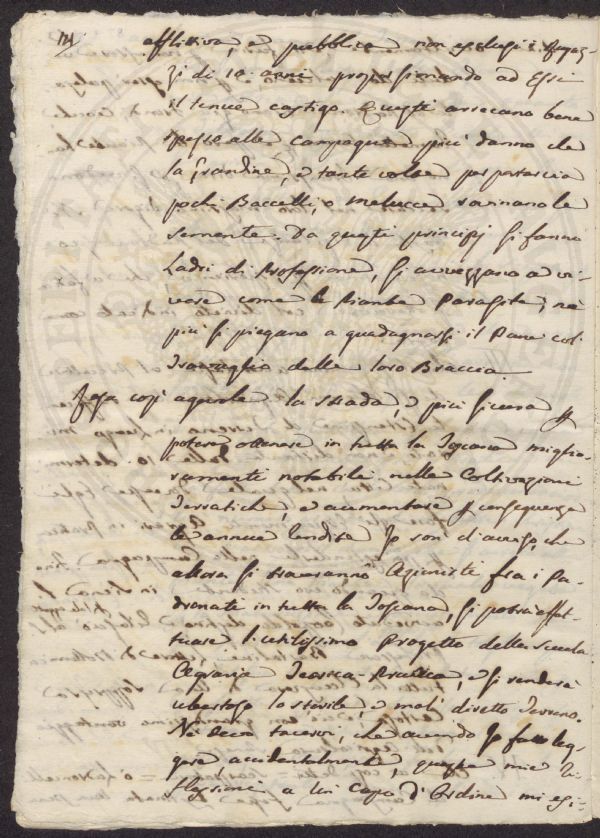 afflittiva, e pubblica non esclusi i Ragaz-
zi di 10 anni proporzionando ad Essi
il tenue castigo. Questi arrecano bene
spesso alle campagne più danno che
la Grandine, e tante volte per portar via
pochi Baccelli, o melucce rovinano le
semente. Da questi principj si fanno
Ladri di Professione, si avvezzano a vi-
vere come le Piante Parasite, nè
più si piegano a guadagnarsi il Pane col
Travaglio delle loro Braccia.
Resa così agevole la strada, e più sicura p
potere ottenere in tutta la Toscana miglio-
ramenti notabili nelle Coltivazioni
e aumentare p conseguenza
le annue Rendite Io son di avviso, che
allora si troveranno Azionisti fra i Pa-
dronati in tutta la Toscana, si potrà effet-
tuare l'utilissimo Progetto della Scuola
Agraria Teorica-Pratica, e si renderà
ubertoso lo sterile, e mal diretto Terreno.
Nè devo tacervi, che avendo Io fatto leg-
gere accidentalmente, queste mie Ri-
flessioni a un Capo d'Ordine mi esi-